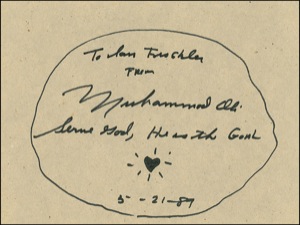 To Ian
From
Muhammad Ali
Serve God, He is the Goal
5-21-89